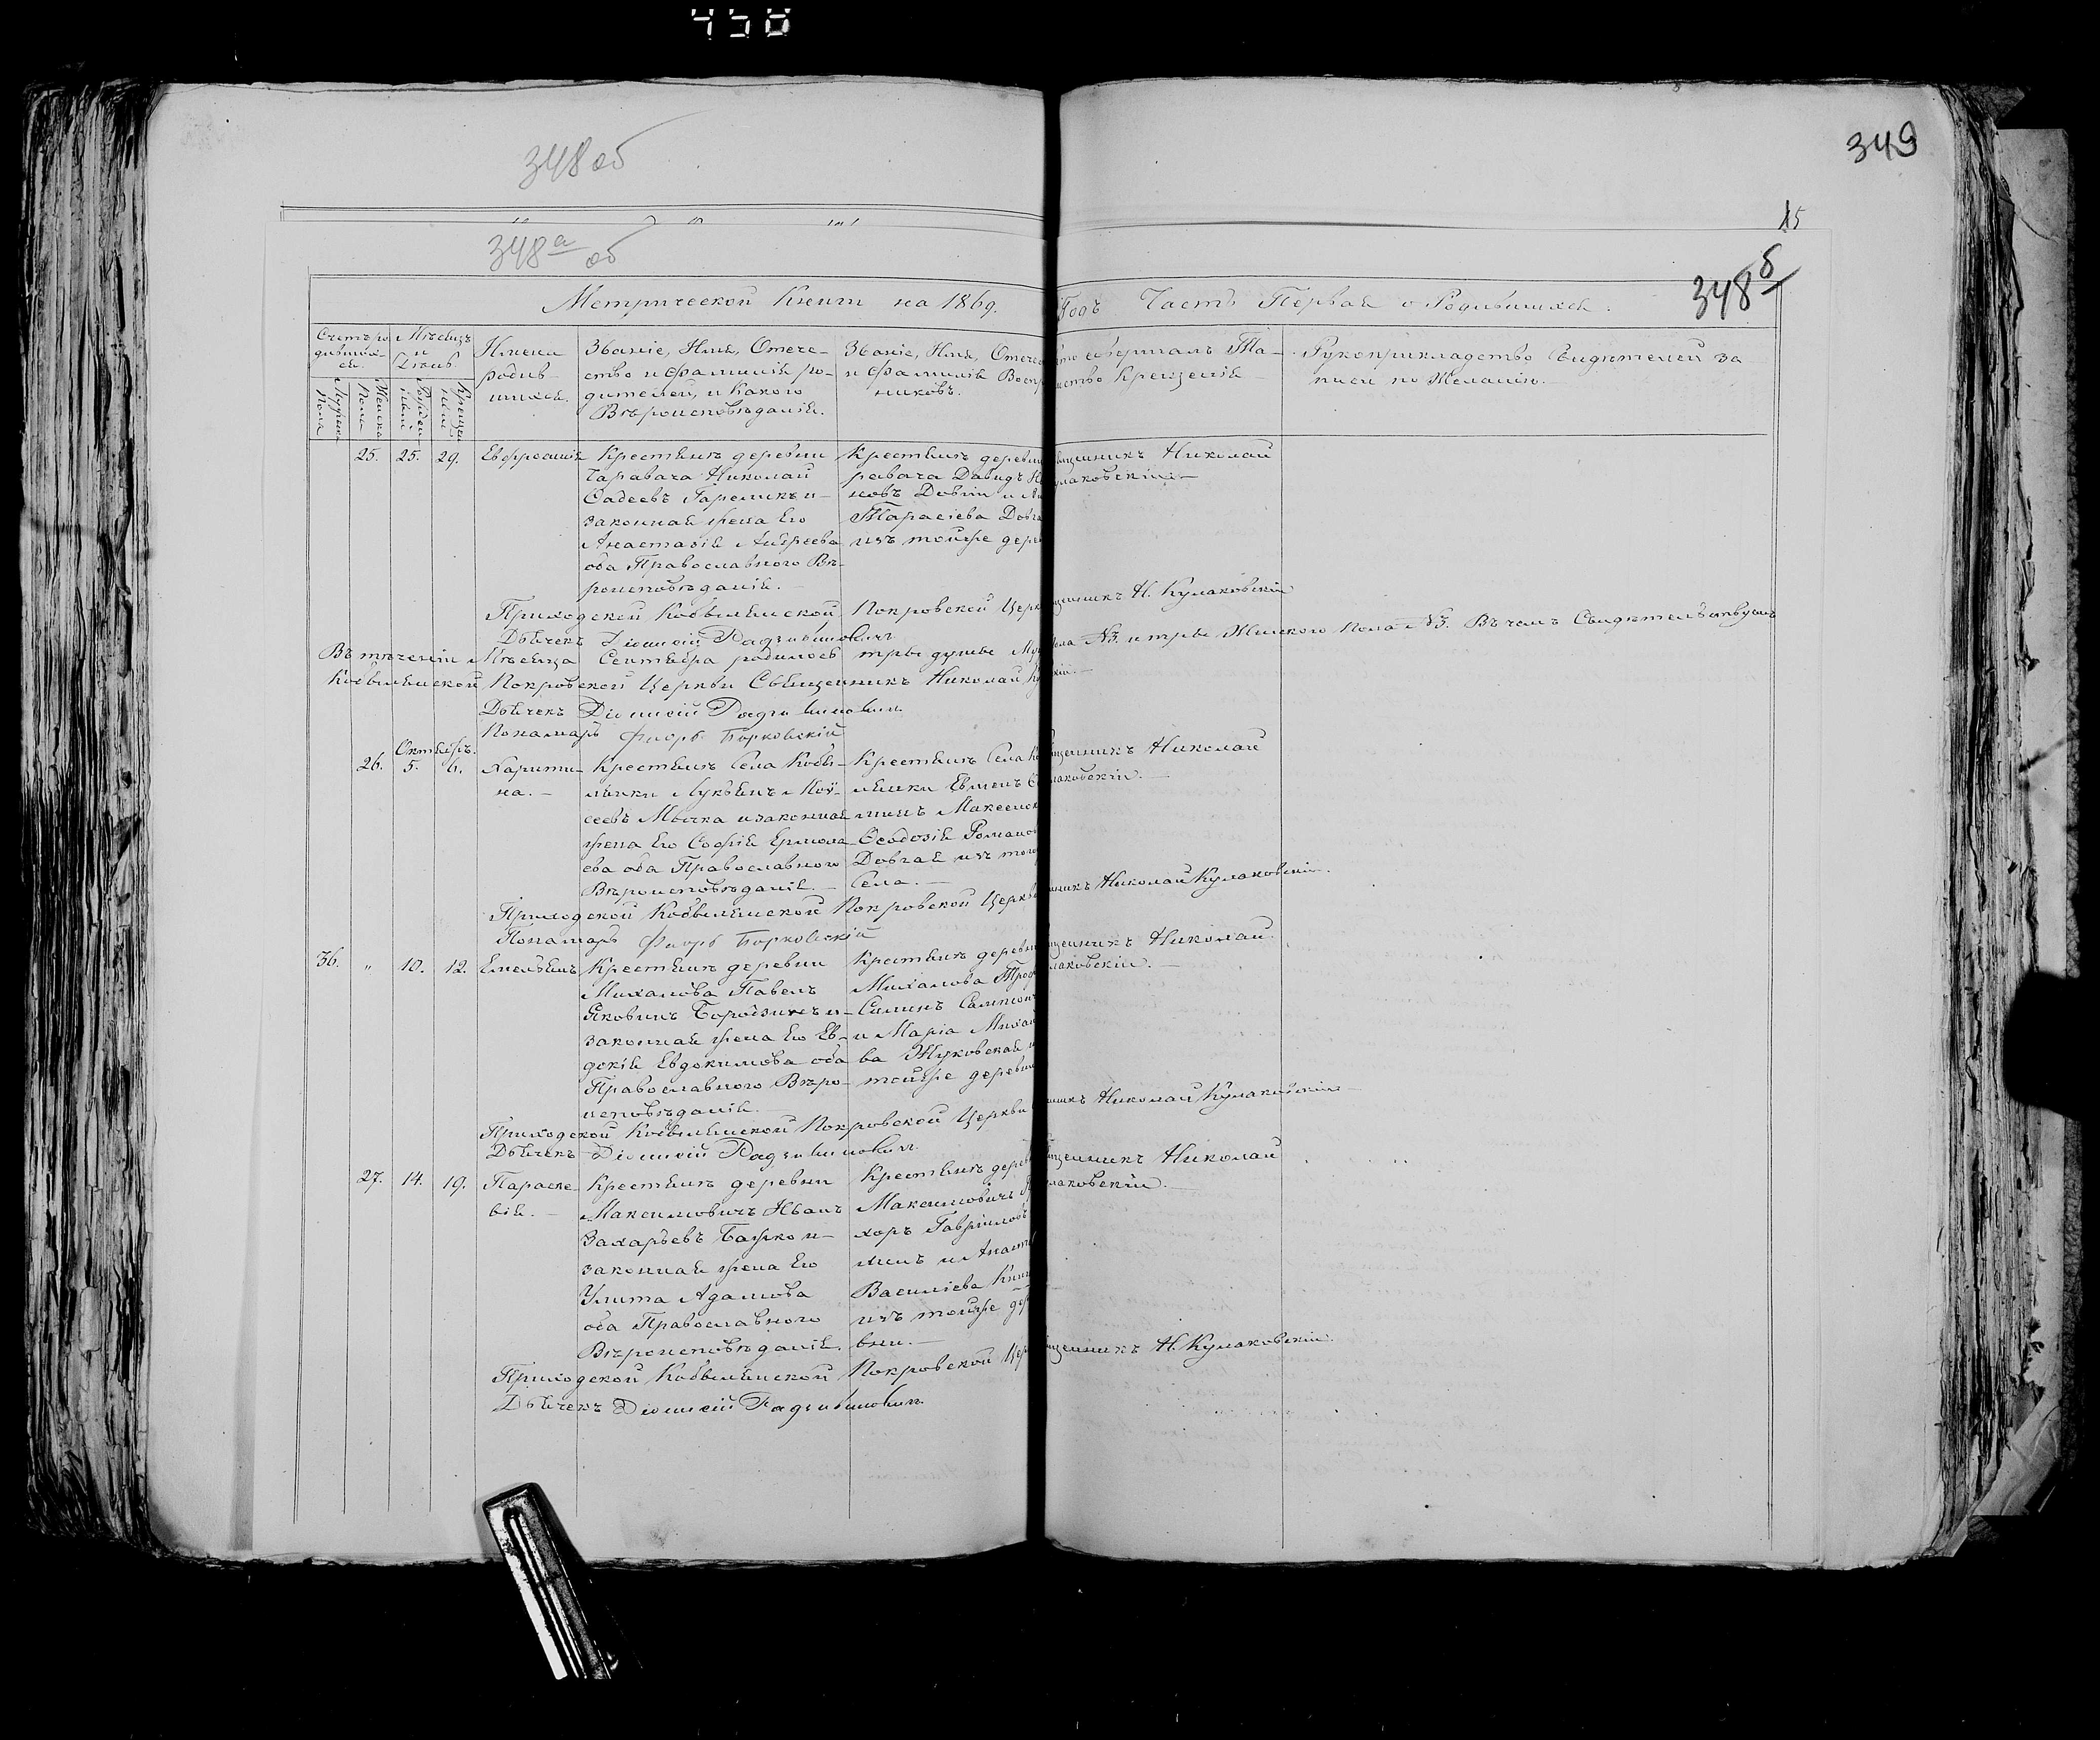 450
348 об
349
15
348 а об
348 б
Метрической Книги на 1869. Годъ Часть Первая о Родившихся.
Счетъ ро
дивших-
ся.
Мужска
Пола
Женска
Пола
Мѣсяцъ
и
День
Рожде
нія
Креще
нія
Имена
родив-
шихся.
Званіе, Имя, Отече-
ство и Фамилія ро-
дителей, и Какого
Вѣроисповѣданія.
Званіе, Имя, Отечес
и Фамилія Воспр
никовъ.
Кто совершалъ Та-
инство Крещенія
Рукоприкладство Свидѣтелей за
писи по Желанію.
25. 25. 29.
Евфросинія
Крестьянъ деревни
Николай
Гарелика и-
законная жена Его
Анастасія Андреева
оба Православного Вѣ-
роисповѣданія.
Крестьянъ деревни
Давидъ
Тарасіева
изъ тойже дере
Священникъ Николай
Кулаковскій
Приходской Кобылянской Покровской Церк Священникъ Н. Кулаковскій
Дьячекъ Діонисій Радзивиновичъ
Въ теченіи Мѣсяца Сентября родилось трое душъ Муж Пола №3. и трое Женского Пола №3. Въ чемъ Свидѣтельствуемъ
Кобылянской Покровской Церкви Священникъ Николай
Дьячекъ Діонисій Радзивиновичъ
Пономарь Флоръ Борковскій
Октябрь.
26. 5. 6.
Харити-
на.-
Крестьянъ Села Кобы-
лянки Лукьянъ Мой-
сеевъ Мычка и законная
жена Его Софія Ермола-
ева оба Православного
Вѣроисповѣданія.-
Крестьянъ Села Ко
лянки
Ѳеодосія Романо
Довгая изъ того
Села.-
Священникъ Николай
Кулаковскій.-
Приходской Кобылянской Покровской Церкви Священникъ Николай Кулаковскій.
Пономарь Флоръ Борковскій
36. „ 10. 12.
Емельянъ
Крестьянъ деревни
Михалова Павелъ
Яковинъ Бородзичъ и-
законная жена Его Ев-
докія Евдокимова оба
Православного Вѣро-
исповѣданія.
Крестьянъ деревни
Михалова
и Марія Михай
ва Жуковская
тойже деревни
Священникъ Николай
Кулаковскій.-
Приходской Кобылянской Покровской Церкви Священникъ Николай Кулаковскій
Дьячекъ Діонисій Радзивиновичъ
27. 14. 19.
Параске-
вія.-
Крестьянъ деревни
Максимовичъ Иванъ
Захарьевъ Бажко и-
законная жена Его
Улита Адамова
оба Православного
Вѣроисповѣданія.
Крестьянъ дере
Максимовичъ
хоръ Гавріиловъ
и Анаст
Василіева
изъ тойже де
вни.-
Священникъ Николай
Кулаковскій.-
Приходской Кобылянской Покровской Цер Священникъ Н. Кулаковскій.
Дьячекъ Діонисій Радзивиновичъ